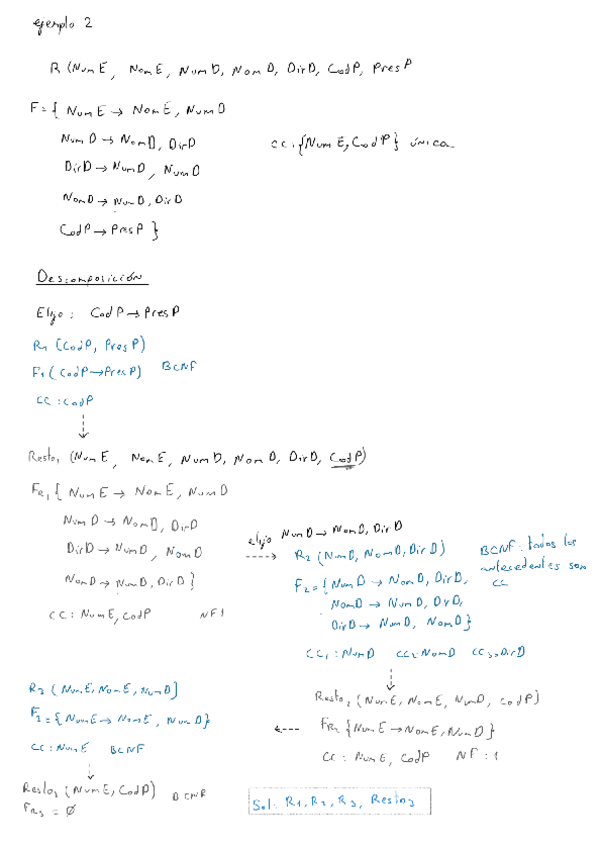 ejemplo 2
R (NumE, NomE, NumD, NomD, DirD, CodP, PresP
F = { NumE → NomE, NumD
NumD → NomD, DirD
CC: {NumE, CodP} única
DirD → NumD, NumD
NomD → NumD, DirD
CodP → PresP }
Descomposición
Elijo: CodP → PresP
R1 (CodP, PresP)
F1 (CodP → PresP) BCNF
CC: CodP
Resto1 (NumE, NomE, NumD, NomD, DirD, CodP)
FR1 { NumE → NomE, NumD
NumD → NomD, DirD
DirD → NumD, NomD
NomD → NumD, DirD }
CC: NumE, CodP NF1
elijo NumD → NomD, DirD
R2 (NumD, NomD, DirD)
BCNF: todos los
antecedentes son
CC
F2 = { NumD → NomD, DirD,
NomD → NumD, DirD,
DirD → NumD, NomD }
CC1: NumD CC2: NomD CC3: DirD
Resto2 (NumE, NomE, NumD, CodP)
FR2 { NumE → NomE, NumD }
CC: NumE, CodP NF: 1
R3 (NumE, NomE, NumD)
F3 = { NumE → NomE, NumD }
CC: NumE BCNF
Resto3 (NumE, CodP) BCNF
FR3 = Ø
Sol: R1, R2, R3, Resto3